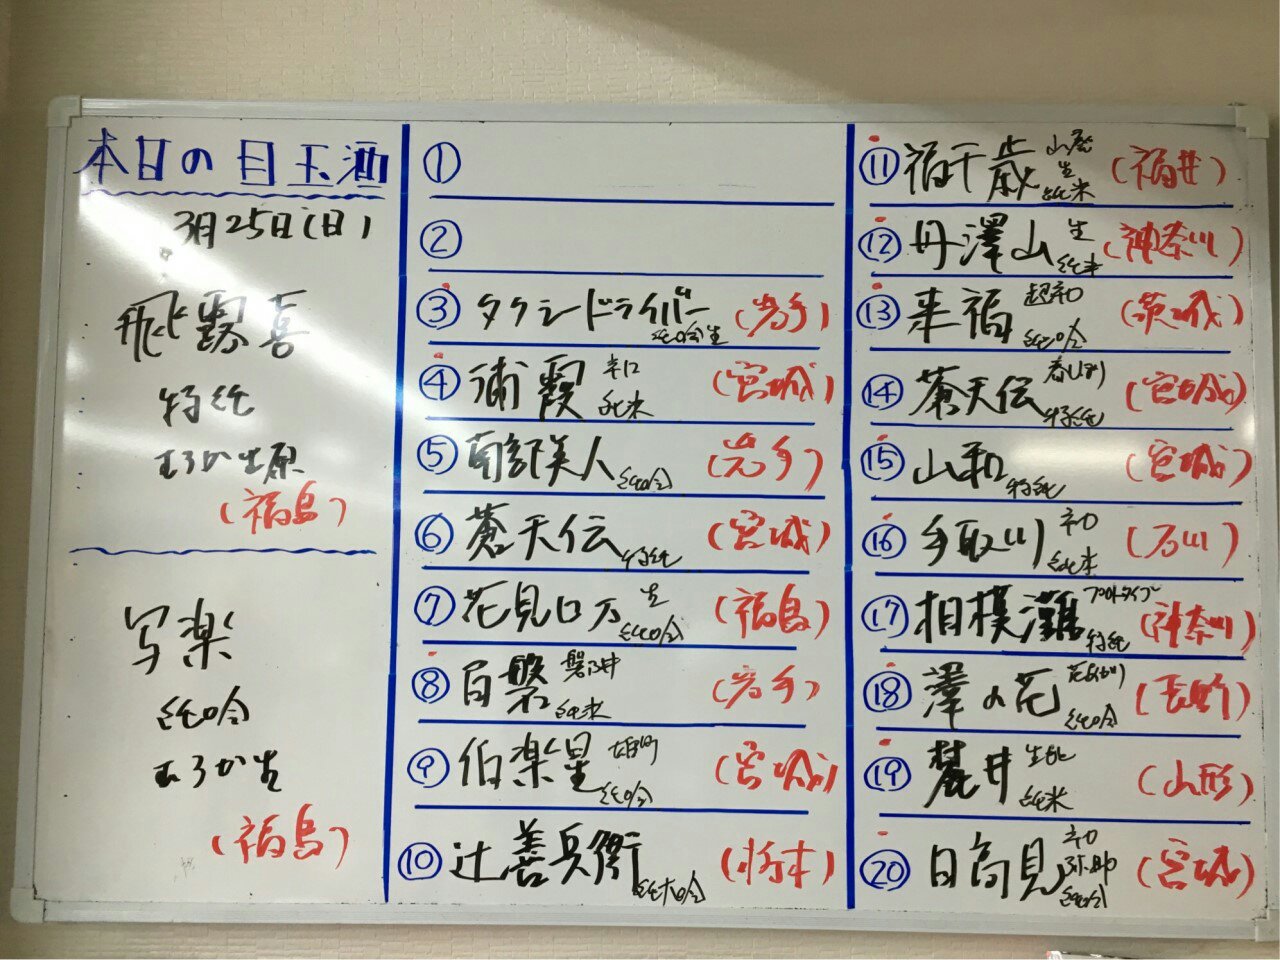 本日の目玉酒
3月25日(日)
飛露喜
特純
むろか生原
(福島)
写楽
純吟
むろか生
(福島)
①
②
③ タクシードライバー 純吟生 (岩手)
④ 浦霞 辛口 純米 (宮城)
⑤ 南部美人 純吟 (岩手)
⑥ 蒼天伝 特純 (宮城)
⑦ 花見ロ万 生 純吟 (福島)
⑧ 百磐 磐乃井 純米 (岩手)
⑨ 伯楽星 雄町 純吟 (宮城)
⑩ 辻善兵衛 純大吟 (栃木)
⑪ 福千歳 山廃 生 純米 (福井)
⑫ 丹澤山 生 純米 (神奈川)
⑬ 来福 超初 純吟 (茨城)
⑭ 蒼天伝 春しぼり 特純 (宮城)
⑮ 山和 特純 (宮城)
⑯ 手取川 初 純米 (石川)
⑰ 相模灘 プロトタイプ 特純 (神奈川)
⑱ 澤の花 花ごこち 純吟 (長野)
⑲ 麓井 生酛 純米 (山形)
⑳ 日高見 初 弥助 純吟 (宮城)